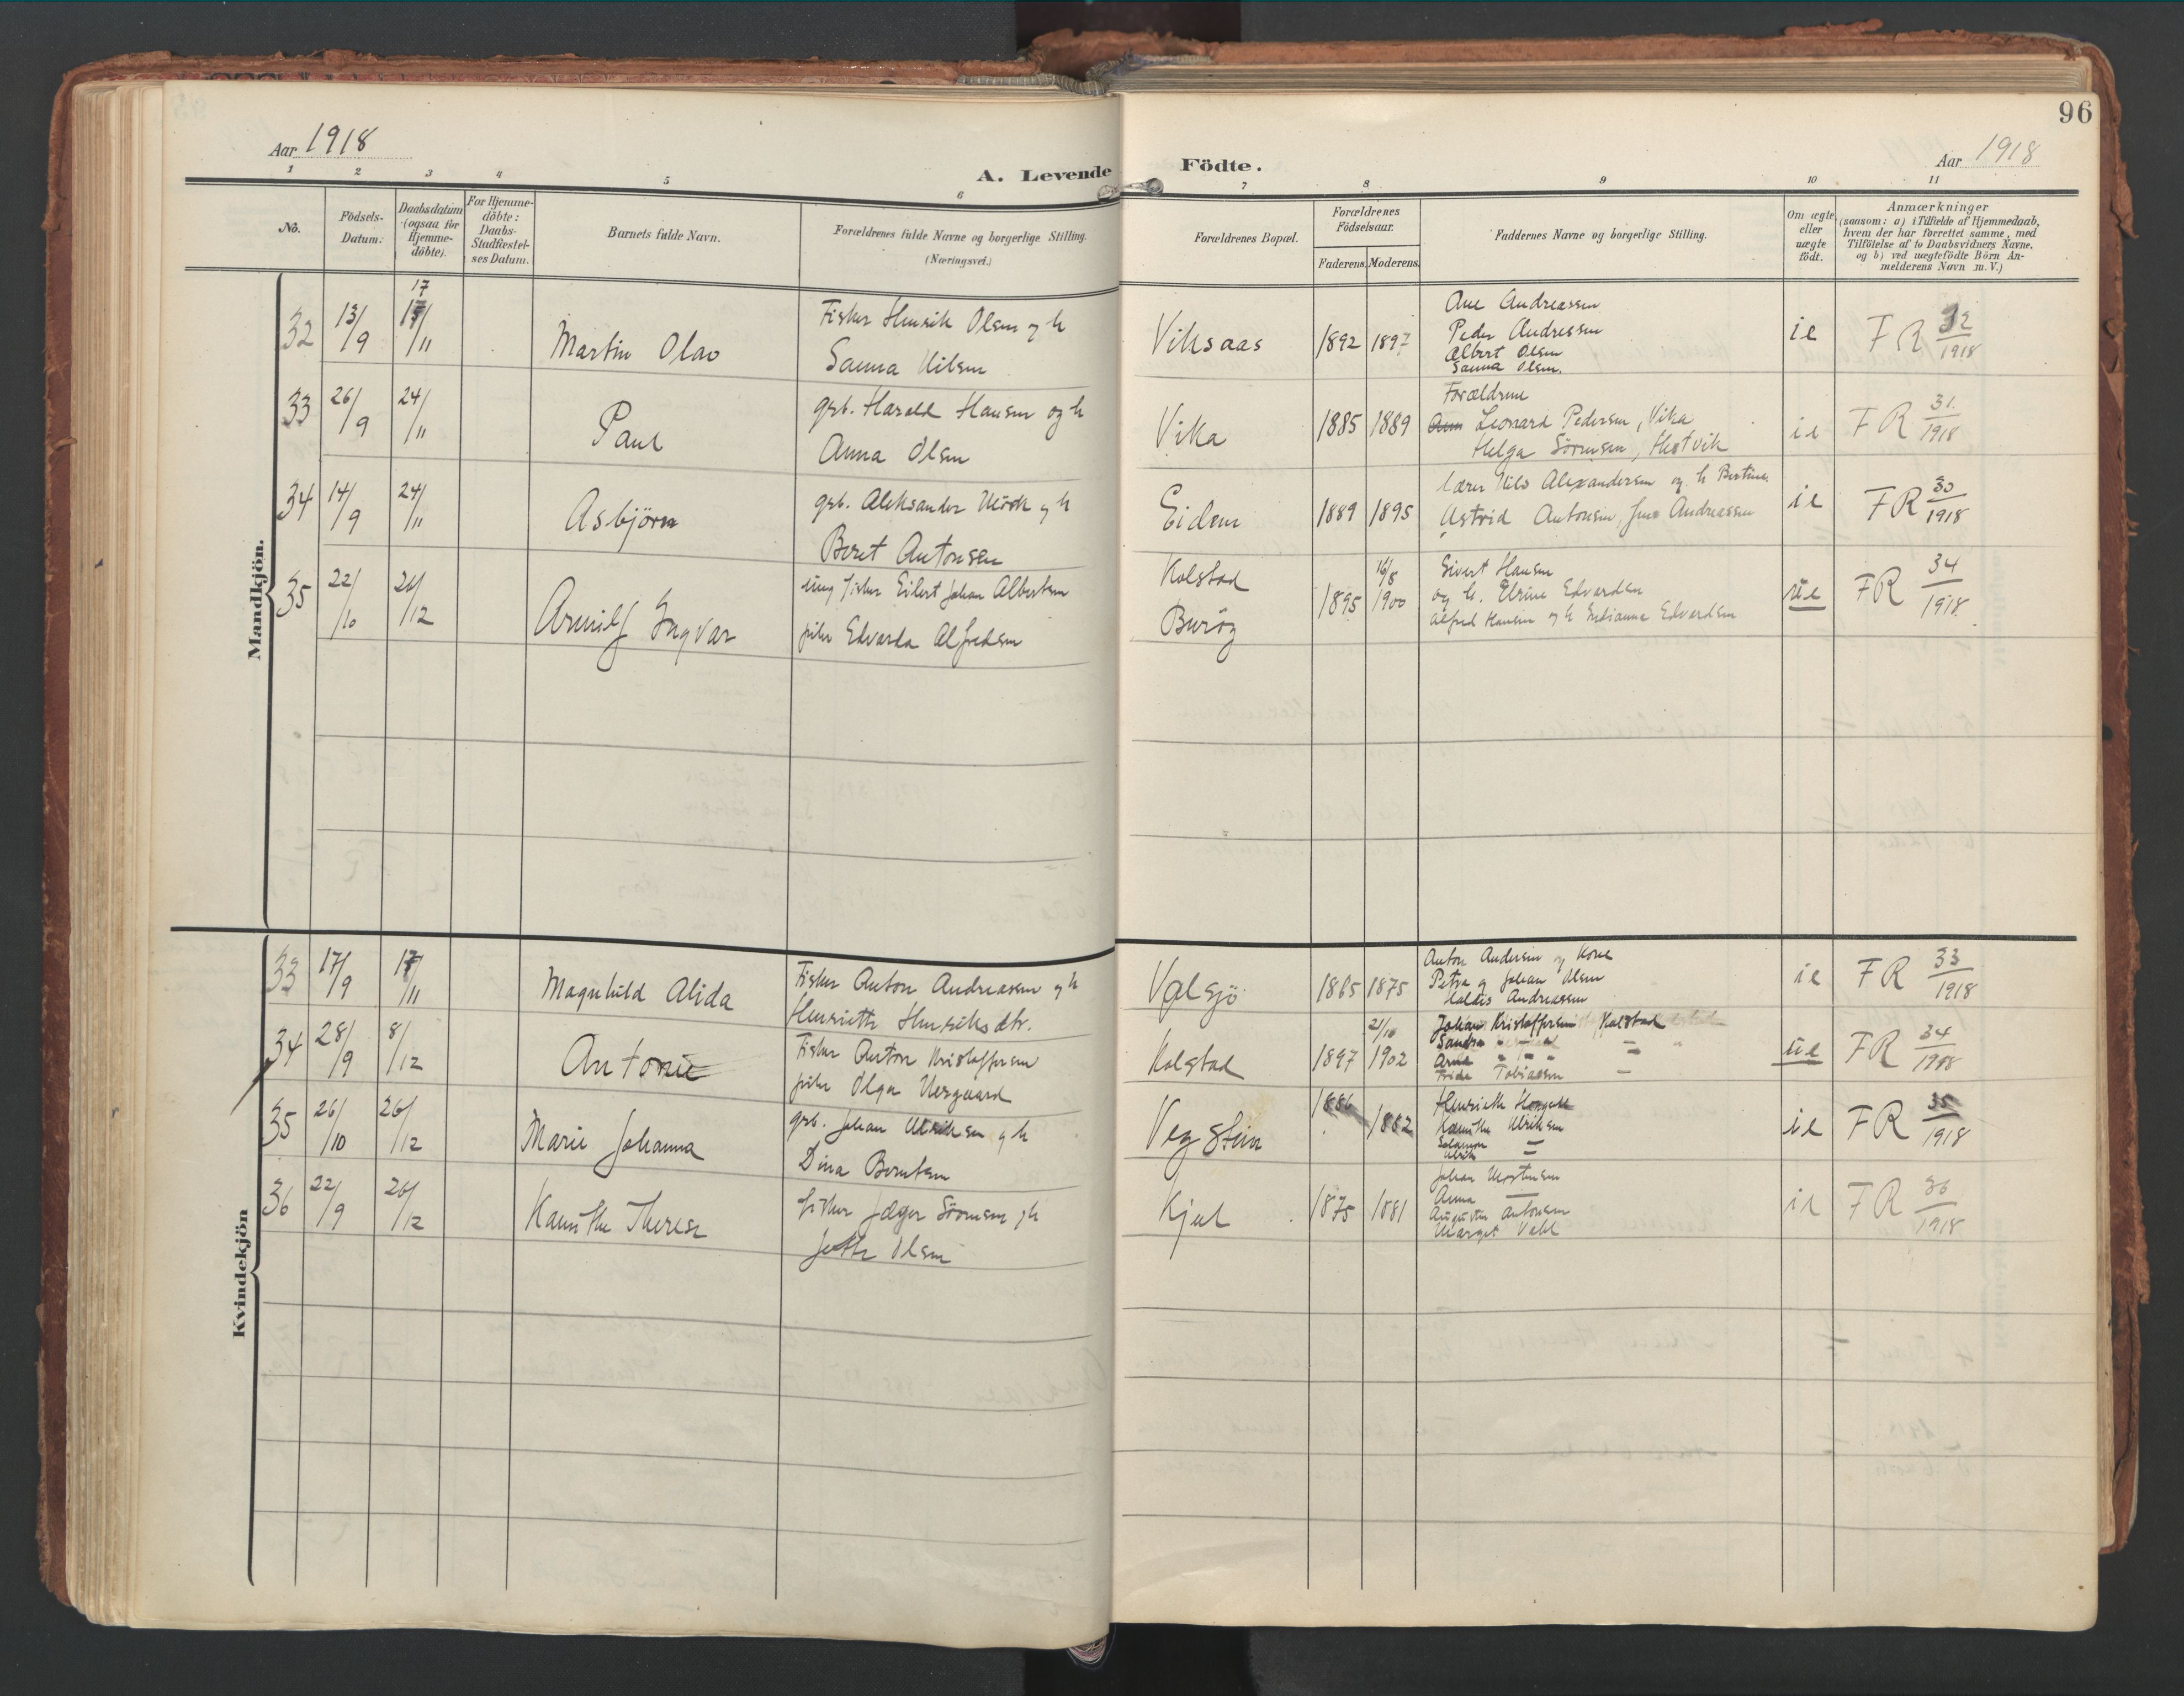 96
Aar 1918
A. Levende Födte.
Aar 1918
1 2 3 4 5 6 7 8 9 10 11
No.
Födsels-
Datum:
Daabsdatum
(ogsaa for
Hjemme-
döbte).
For Hjemme-
döbte:
Daabs-
Stadfæstel-
ses Datum.
Barnets fulde Navn.
Forældrenes fulde Navne og borgerlige Stilling.
(Næringsvei.)
Forældrenes Bopæl.
Forældrenes
Födselsaar.
Faderens. Moderens.
Faddernes Navne og borgerlige Stilling.
Om ægte
eller
uægte
födt.
Anmærkninger
(saasom: a) i Tilfælde af Hjemmedaab,
hvem der har forrettet samme, med
Tilföielse af to Daabsvidners Navne.
og b) ved uægtefödte Börn An-
melderens Navn m. V.)
Mandkjön.
32 13/9 17/11 Martin Olav
Fisker Henrik Olsen og h
Sanna Nilsen
Viksaas 1892 1897
Ane Andreassen
Peder Andressen
Albert Olsen
Sanna Olsen.
ie FR 32/1918
33 26/9 24/11 Paul
grb. Harald Hansen og h
Anna Olsen
Vika 1885 1889
Forældrene
Leonard Pedersen, Vika
Helga Sörensen, Hestvik
ie FR 31/1918
34 14/9 24/11 Asbjörn
grb. Aleksander Mörk og h
Beret Antonsen
Eidem 1889 1895
lærer Nils Alexandersen og h Bertine
Astrid Antonsen, Andreassen
ie FR 30/1918
35 22/10 21/12 Arnulf Ingvar
ung fisker Eilert Johan Albertsen
pike Edvarda Alfredsen
Kolstad
Buröy
1895 16/8 1900
Sivert Hansen
og h. Elrine Edvardsen
Alfred Hansen og h Edvardsen
ue FR 34/1918.
Kvindekjön
33 17/9 17/11 Magnhild Alida
Fisker Anton Andreassen og h
Henriette Henriksdtr.
Valsjö 1865 1875
Anton Andersen og Kone
Petra og Johan Olsen
Haldis Andreassen
ie FR 33/1918
34 28/9 8/12 Antonie
Fisker Anton Kristoffersen
pike Olga Nergaard
Kolstad 1897 21/10 1902
Johan Kristoffersen Kolstad
Sandra " " "
Arne " " "
Frida Tobiassen
ue FR 34/1918
35 26/10 26/12 Marie Johanna
grb. Johan Ulriksen og h
Dina Berntsen
Vegstein 1886 1882
Henriette
Kamitha Ulriksen
Salamon
Ulrik
ie FR 35/1918
36 22/9 26/12 Kamitha Therese
fisker Jæger Sörensen og h
Jette Olsen
Kjul 1875 1881
Johan
Anna
Augustin Antonsen
Marget
ie FR 36/1918